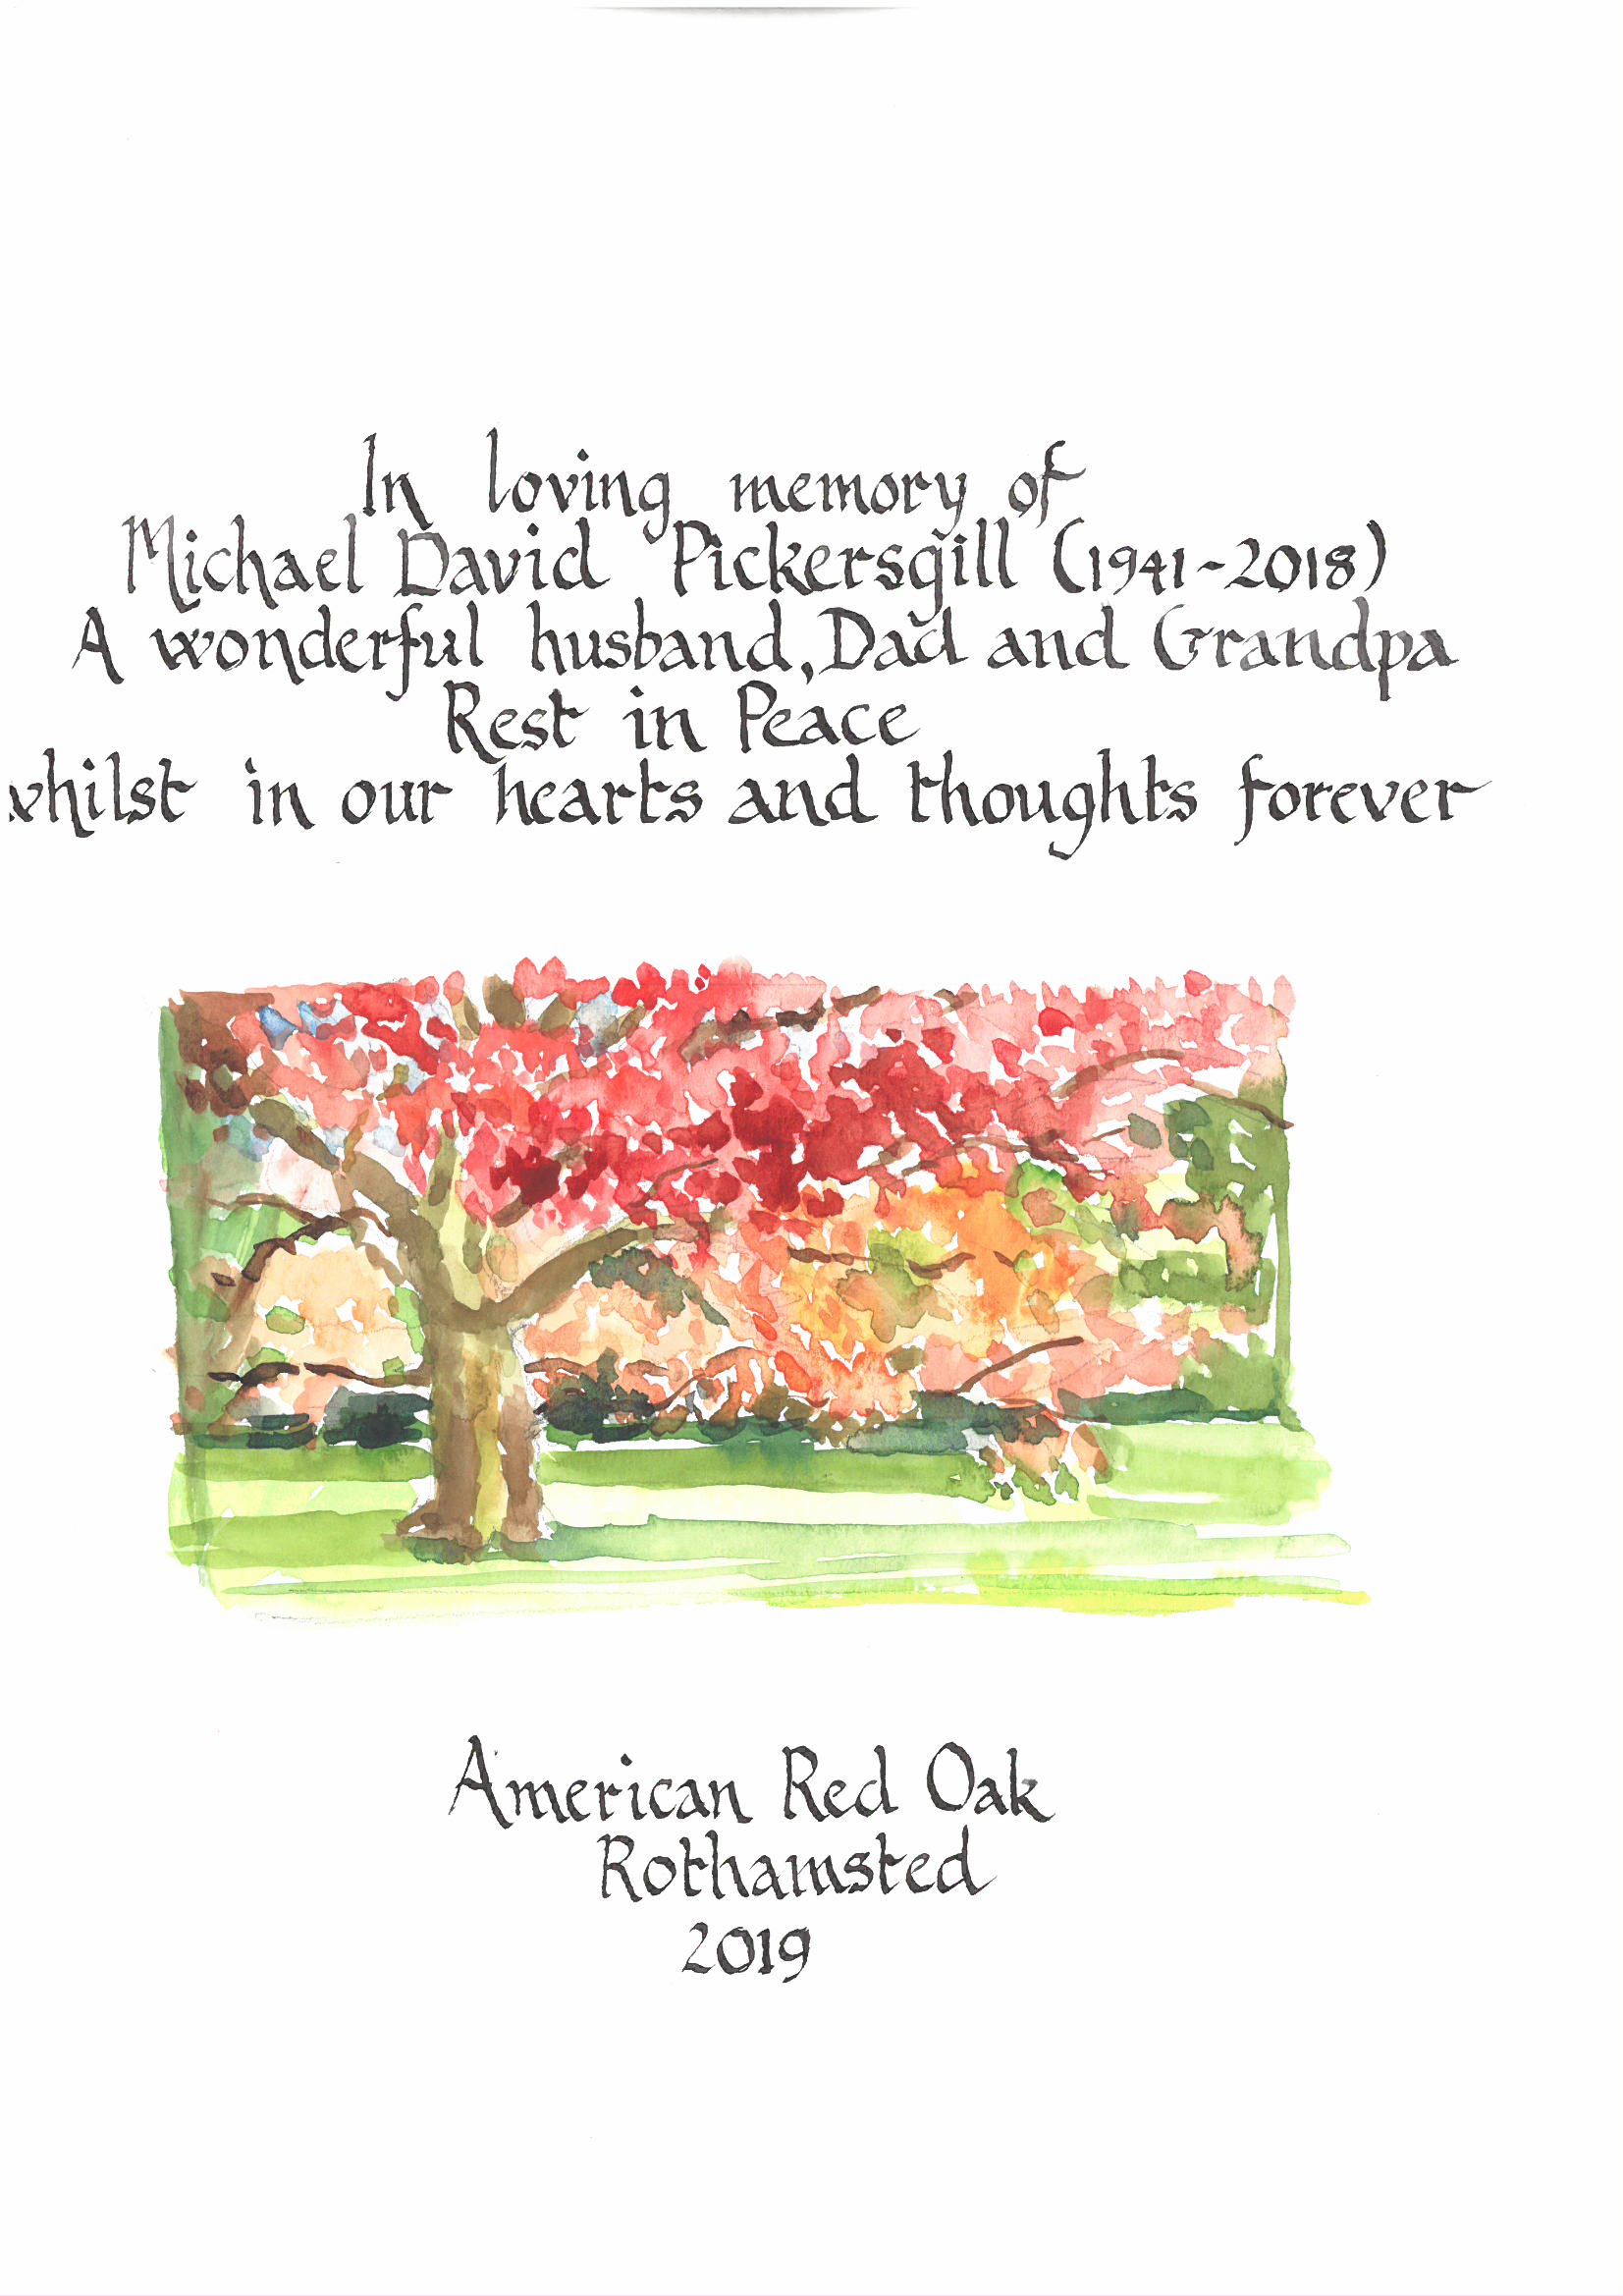 In loving memory of
Michael David Pickersgill (1941-2018)
A wonderful husband, Dad and Grandpa
Rest in Peace
whilst in our hearts and thoughts forever
American Red Oak
Rothamsted
2019